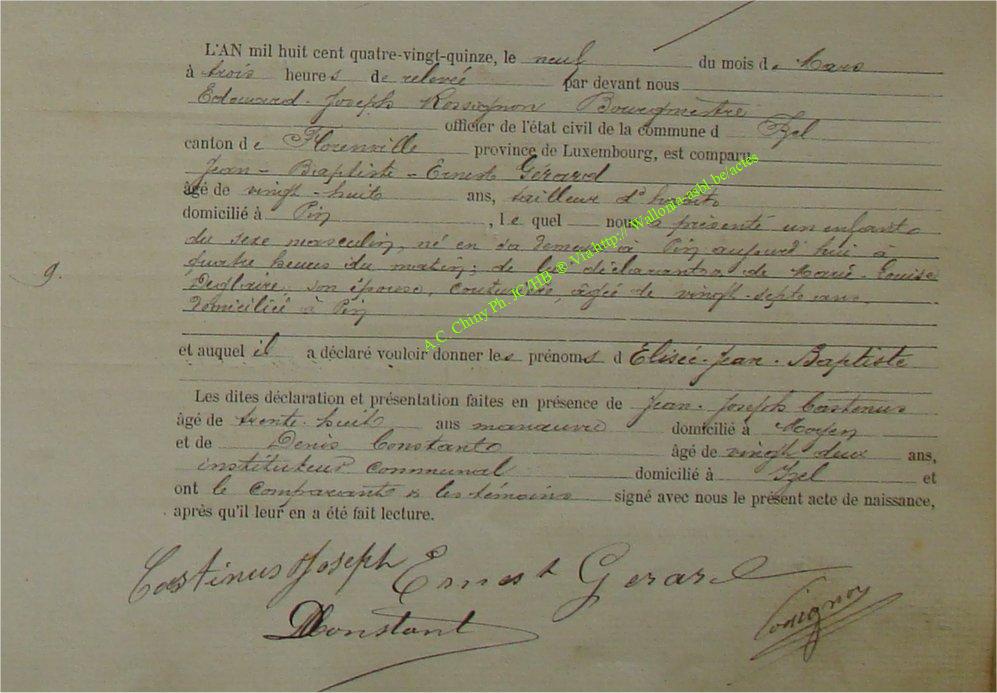 L'AN mil huit cent quatre-vingt-quinze, le neuf du mois de Mars
à trois heures de relevée par devant nous
Edouard Joseph Rossignon Bourgmestre
officier de l'état civil de la commune d Izel
canton de Florenville province de Luxembourg, est comparu
Jean-Baptiste-Ernest Gérard
âgé de vingt-huit ans, tailleur d'habits
domicilié à Pin, lequel nous a présenté un enfant
du sexe masculin, né en sa demeure à Pin aujourd'hui à
quatre heures du matin; de lui déclarant & de Marie-Louise
son épouse, couturière, âgée de vingt-sept ans
domiciliée à Pin
9.
et auquel il a déclaré vouloir donner les prénoms d Elisée-Jean-Baptiste
Les dites déclaration et présentation faites en présence de Jean-Joseph Castenus
âgé de trente-huit ans manœuvre domicilié à Moyen
et de Denis Constant âgé de vingt deux ans,
instituteur communal domicilié à Izel et
ont le comparant & les témoins signé avec nous le présent acte de naissance,
après qu'il leur en a été fait lecture.
A.C. Chiny Ph. JC/HB ® Via http://Wallonia-asbl.be/actes
Castinus Joseph Ernest Gerard
DConstant Rossignon